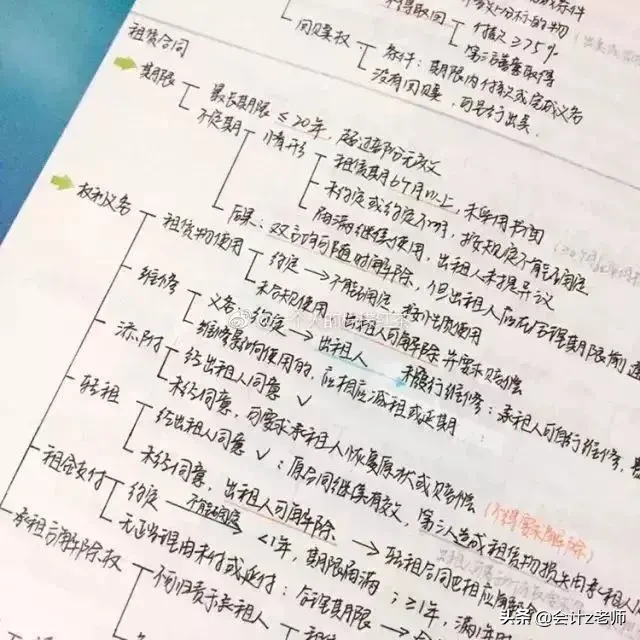 付款≥75%
第三人善意取得
回赎权 条件：期限内付款或完成义务
没有回赎，可另行出卖.
租赁合同
期限 最长期限≤20年，超过部分无效
不定期 情形 租赁期6个月以上，未采用书面
未约定或约定不明，按规定不能确定
届满继续使用，出租人未提异议
后果：双方均可随时解除，但出租人应在合理期限前通
权利义务 租赁物使用 约定→不能确定 按性质使用
未合规使用 出租人可解除并要求赔偿
维修 义务 约定→出租人 未履行维修：承租人可自行维修，
维修影响使用的，应相应减租或延期
添附 经出租人同意 ✓
未经同意，可要求承租人恢复原状或赔偿
转租 经出租人同意 ✓：原合同继续有效，第三人造成租赁物损失由承租人
未经同意，出租人可解除→转租合同也相应解除
(不得要求解除)
租金支付 约定 不能确定 <1年，期限届满；≥1年，满1年
无正当理由未付或延付：合理期限→
承租方解除权 不可归责于承租人
个人的
头条@会计z老师